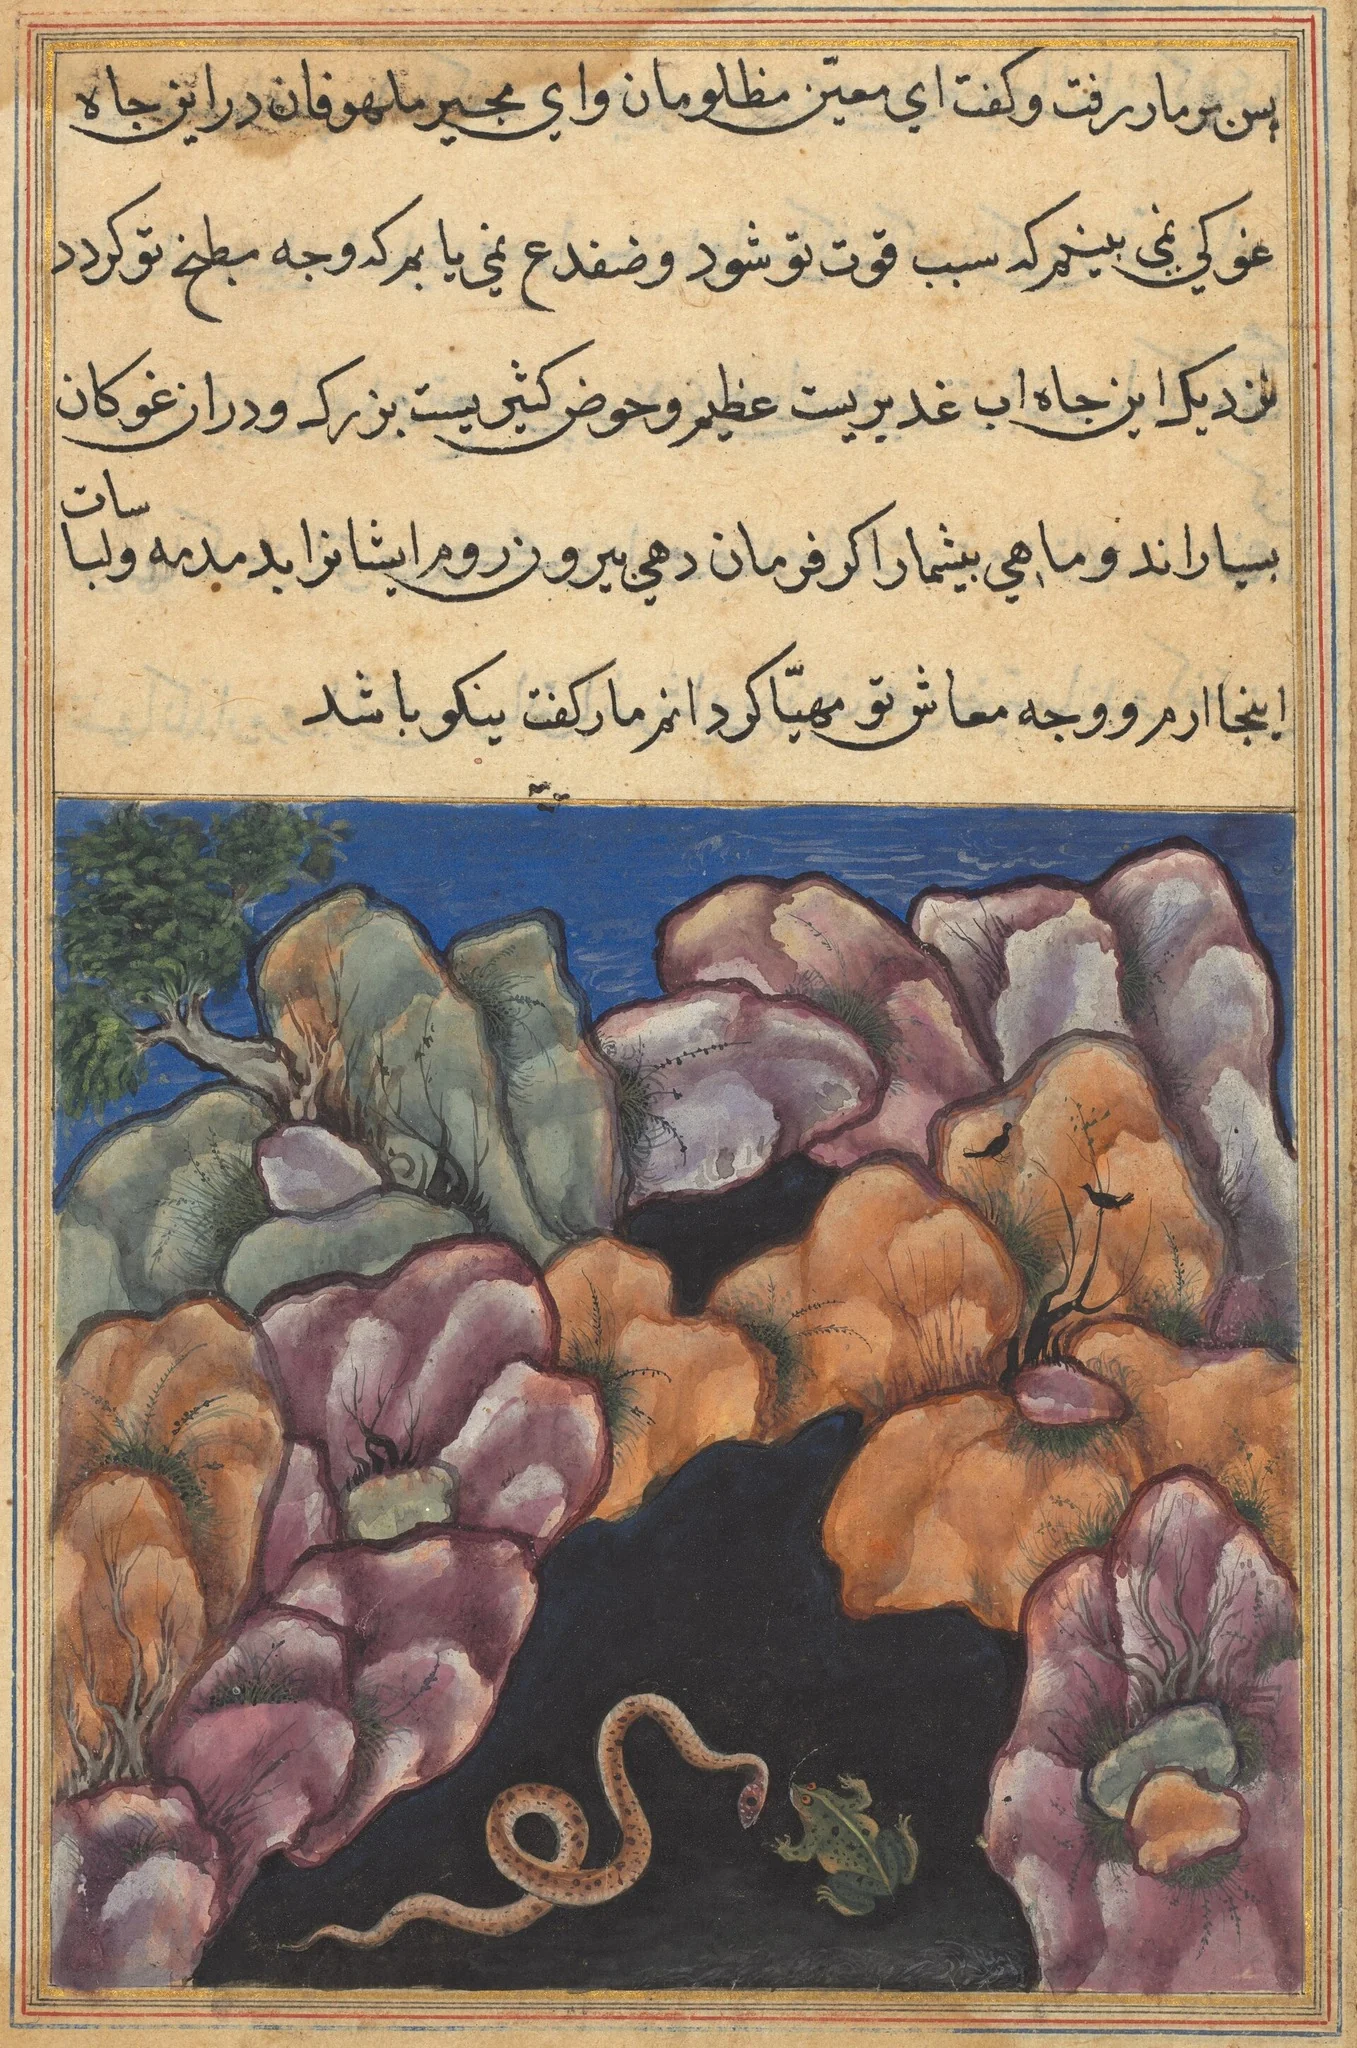 پس بر مار رفت و کفت ای معین مظلومان و ای مجیر ملهوفان در این جاه
غوکی نمی بینم که سبب قوت تو شود و ضفدع نمی یابم که وجه مطبخ تو کردد
نزدیک این جاه اب غدیریست عظیم و حوض کثیریست بزرک و دران غوکان
بسیاراند و ماهی بیشمار اکر فرمان دهی بیرون روم ایشانرا بدمدمه ولباسات
اینجا ارم و وجه معاش تو مهیّا کردانم مار کفت نیکو باشد